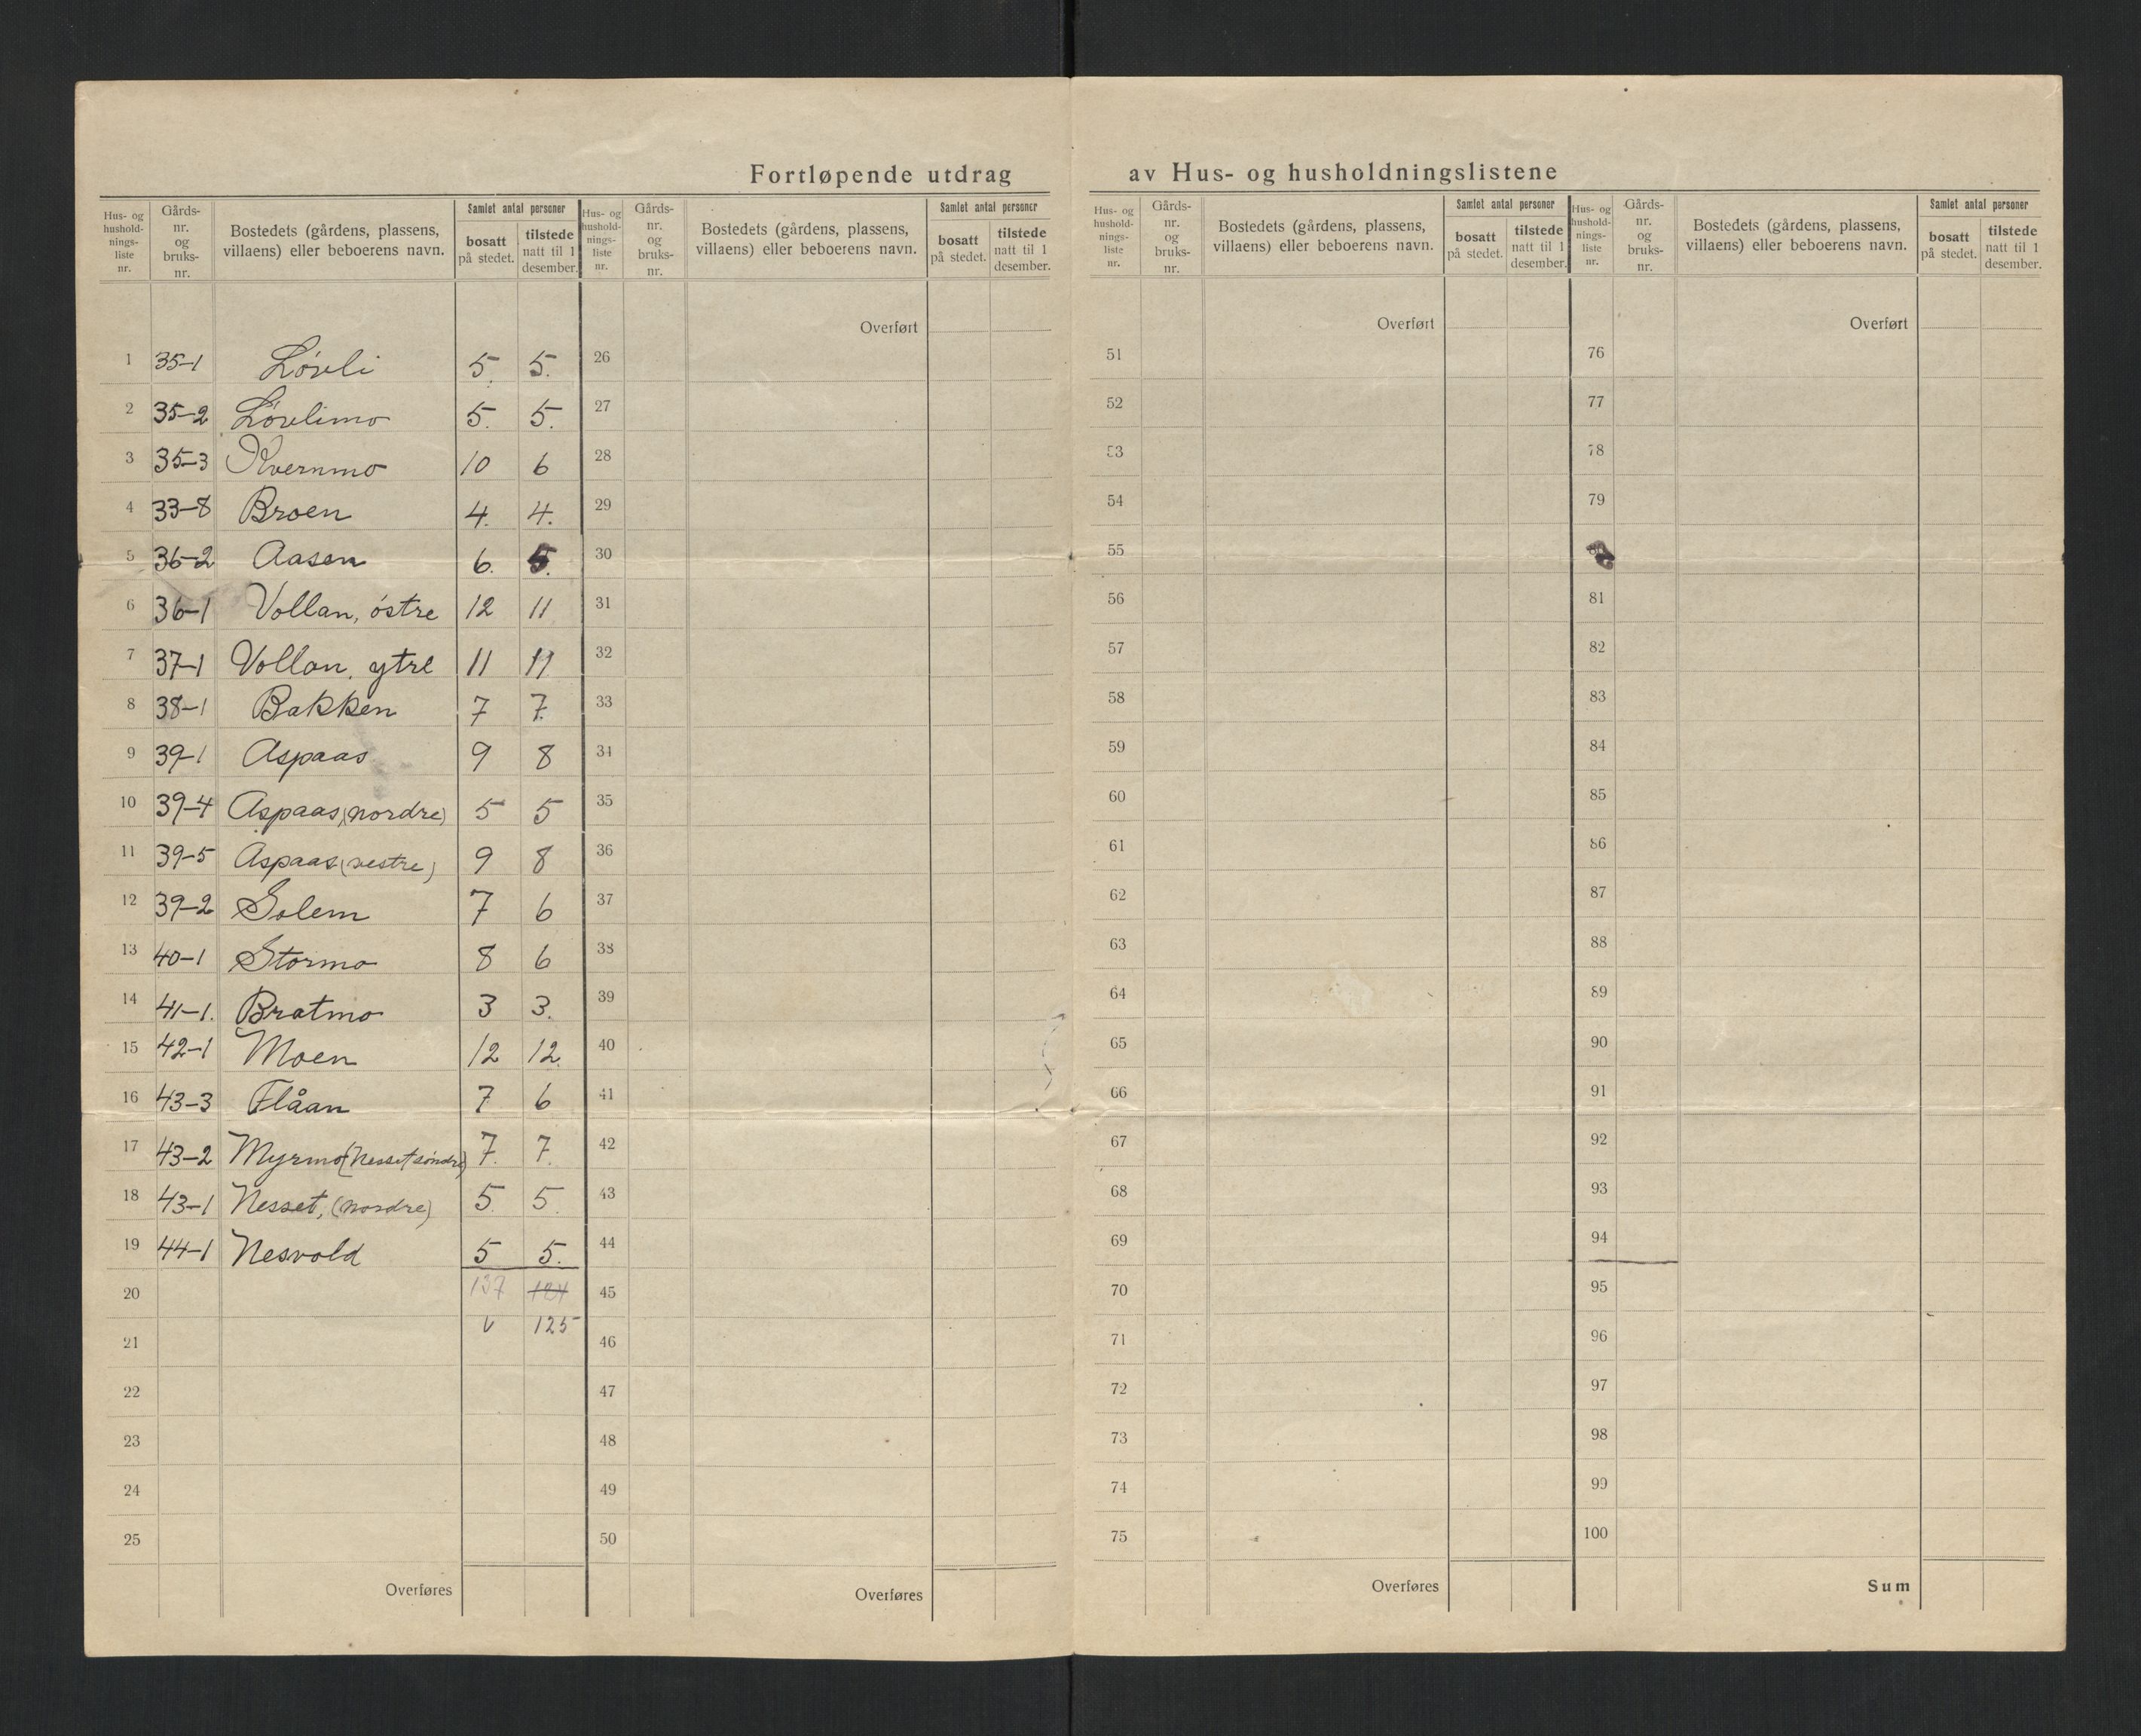 Fortløpende utdrag av Hus- og husholdningslistene
Hus- og hushold-nings-liste nr. Gårds-nr. og bruks-nr. Bostedets (gårdens, plassens, villaens) eller beboerens navn. Samlet antal personer bosatt på stedet. tilstede natt til 1 desember.
Hus- og hushold-nings-liste nr. Gårds-nr. og bruks-nr. Bostedets (gårdens, plassens, villaens) eller beboerens navn. Samlet antal personer bosatt på stedet. tilstede natt til 1 desember.
Hus- og hushold-nings-liste nr. Gårds-nr. og bruks-nr. Bostedets (gårdens, plassens, villaens) eller beboerens navn. Samlet antal personer bosatt på stedet. tilstede natt til 1 desember.
Hus- og hushold-nings-liste nr. Gårds-nr. og bruks-nr. Bostedets (gårdens, plassens, villaens) eller beboerens navn. Samlet antal personer bosatt på stedet. tilstede natt til 1 desember.
Overført Overført Overført
1 35-1 Lóvli 5. 5. 26 51 76
2 35-2 Lóvlimo 5. 5. 27 52 77
3 35-3 Kvernmo 10 6 28 53 78
4 33-8 Broen 4. 4. 29 54 79
5 36-2 Aasen 6. 5. 30 55
6 36-1 Vollan, óstre 12 11 31 56 81
7 37-1 Vollan, ytre 11 11. 32 57 82
8 38-1 Bakken 7 7. 33 58 83
9 39-1 Aspaas 9 8 34 59 84
10 39-4 Aspaas, (nordre) 5 5 35 60 85
11 39-5 Aspaas (vestre) 9 8 36 61 86
12 39-2 Solem 7 6 37 62 87
13 40-1 Stormo 8 6 38 63 88
14 41-1. Bratmo 3 3. 39 64 89
15 42-1 Moen 12 12. 40 65 90
16 43-3 Flåan 7 6 41 66 91
17 43-2 Myrmo (Nesset sóndre) 7. 7. 42 67 92
18 43-1 Nesset, (nordre) 5. 5. 43 68 93
19 44-1 Nesvold 5 5. 44 69 94
20 137 124 45 70 95
21 v 125 46 71 96
22 47 72 97
23 48 73 98
24 49 74 99
25 50 75 100
Overføres Overføres Overføres Sum